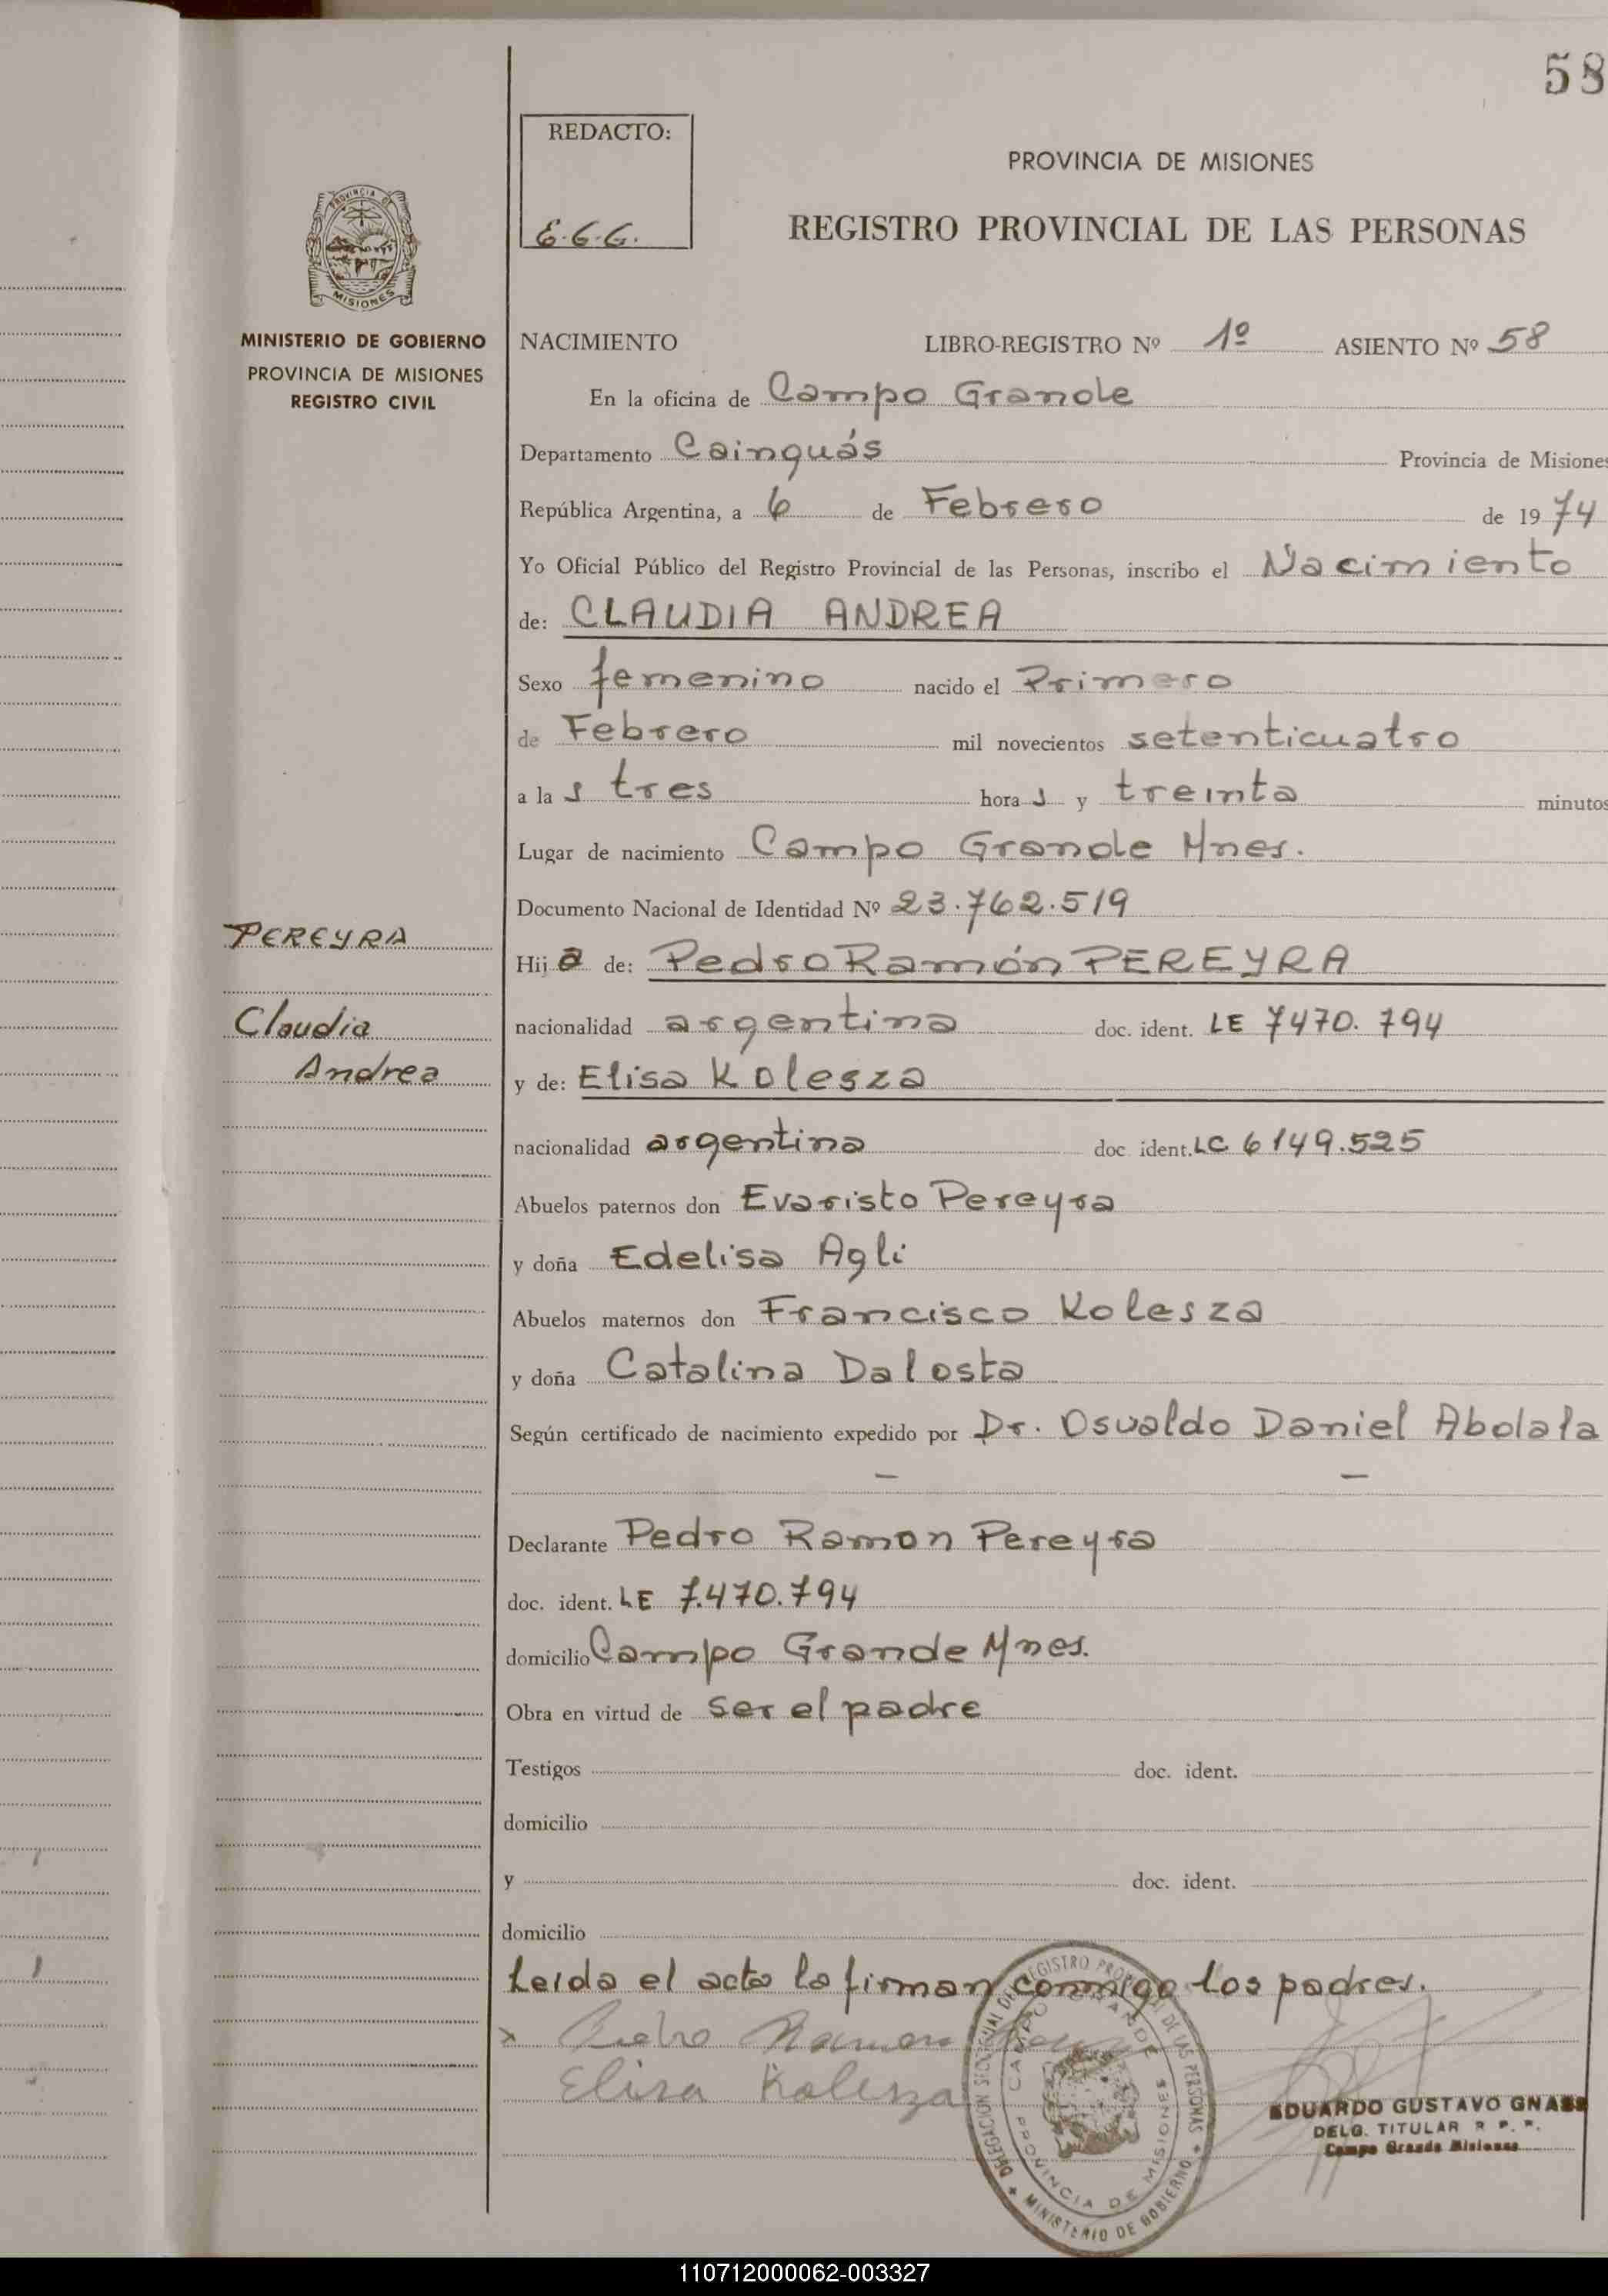 58
REDACTO:
E.G.G.
PROVINCIA DE MISIONES
REGISTRO PROVINCIAL DE LAS PERSONAS
PROVINCIA DE
MISIONES
MINISTERIO DE GOBIERNO
PROVINCIA DE MISIONES
REGISTRO CIVIL
NACIMIENTO LIBRO-REGISTRO Nº 1º ASIENTO Nº 58
En la oficina de Campo Grande
Departamento Cainguás Provincia de Misiones
República Argentina, a 6 de Febrero de 1974
Yo Oficial Público del Registro Provincial de las Personas, inscribo el Nacimiento
de: CLAUDIA ANDREA
Sexo femenino nacido el Primero
de Febrero mil novecientos setenticuatro
a la s tres hora s y treinta minutos
Lugar de nacimiento Campo Grande Mnes.
Documento Nacional de Identidad Nº 23.762.519
PEREYRA
Claudia
Andrea
Hij a de: Pedro Ramón PEREYRA
nacionalidad argentina doc. ident. LE 7470.794
y de: Elisa Kolesza
nacionalidad argentina doc. ident. LC 6149.525
Abuelos paternos don Evaristo Pereyra
y doña Edelisa Agli
Abuelos maternos don Francisco Kolesza
y doña Catalina Dalosta
Según certificado de nacimiento expedido por Dr. Osvaldo Daniel Abolala
— —
Declarante Pedro Ramon Pereyra
doc. ident. LE 7.470.794
domicilio Campo Grande Mnes.
Obra en virtud de ser el padre
Testigos doc. ident.
domicilio
y doc. ident.
domicilio
Leida el acta la firman conmigo los padres.
x Pedro Ramon
Elisa Kolesza
DELEGACION SECCIONAL DEL REGISTRO PROVINCIAL DE LAS PERSONAS
CAMPO GRANDE
PROVINCIA DE MISIONES
MINISTERIO DE GOBIERNO
EDUARDO GUSTAVO GNASS
DELG. TITULAR R. P. P.
Campo Grande Misiones
110712000062-003327